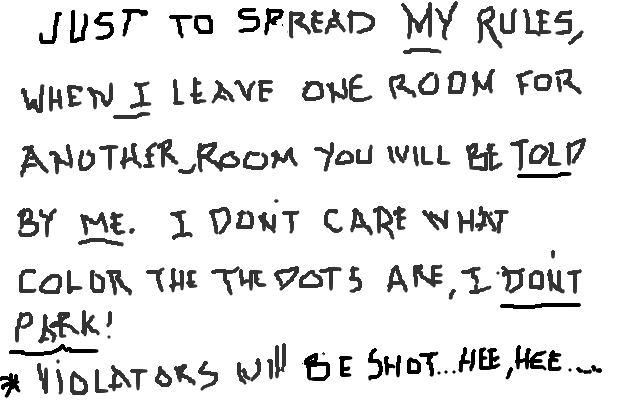 JUST TO SPREAD MY RULES,
WHEN I LEAVE ONE ROOM FOR
ANOTHER ROOM YOU WILL BE TOLD
BY ME. I DON'T CARE WHAT
COLOR THE THE DOTS ARE, I DON'T
PARK!
* VIOLATORS WILL BE SHOT...HEE, HEE....